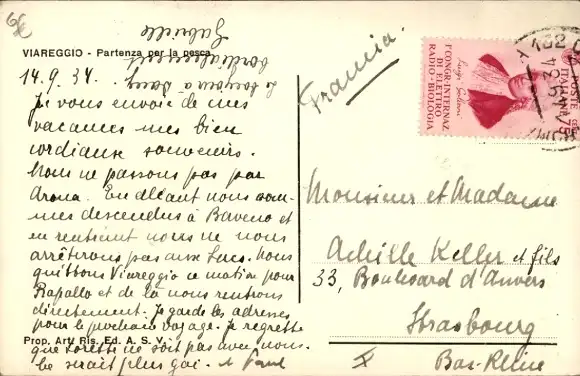 VIAREGGIO - Partenza per la pesca
14.9.34.
Je vous envoie de mes
vacances mes bien
cordiaux souvenirs.
Nous ne passons pas par
Arona. En allant nous som-
mes descendus à Baveno et
en rentrant nous ne nous
arrêterons pas aux Lacs. Nous
quittons Viareggio ce matin pour
Rapallo et de là nous rentrons
directement. Je garde les adresses
pour le prochain voyage. Je regrette
que Lorette ne soit pas avec nous.
Ce serait plus gai.
le bonjour à
cordialement
Gabrielle
Prop. Art. Ris. Ed. A. S. V.
Francia.
Iº CONGR. INTERNAZ.
DI ELETTRO
RADIO-BIOLOGIA
Luigi Galvani
POSTE
ITALIANE
75
Monsieur et Madame
Achille Keller et fils
33, Boulevard d'Anvers
Strasbourg
Bas-Rhine